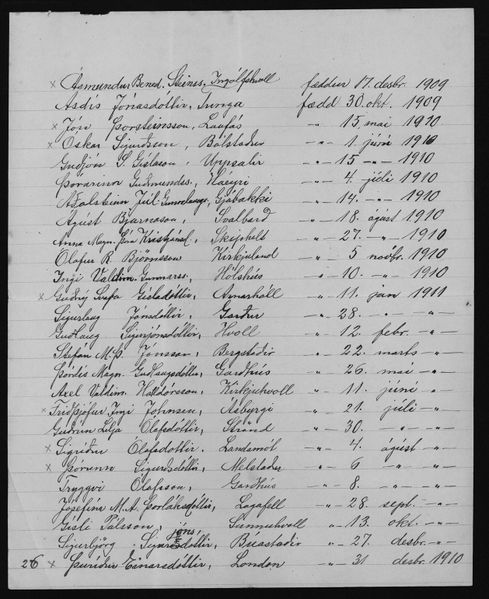 x Ásmundur Bened. Steines, Ingólfshvoll fæddur 17. desbr. 1909
Ásdís Jónasdóttir, Tunga fædd 30. okt. 1909
x Jón Þorsteinsson, Laufás -"- 15. maí 1910
x Óskar Sigurðsson, Bólstaður -"- 1. júní 1910
Guðjón S. Gíslason, Uppsalir -"- 15 -"- 1910
Þórarinn Guðmundss., Háeyri -"- 4. júlí 1910
Aðalsteinn Júl. Gunnlaugs, Gjábakki -"- 14. -"- 1910
Ágúst Bjarnason, Svalbarð -"- 18. ágúst 1910
Anna Magn. Kristjánsd., Skipholt -"- 27. -"- 1910
Ólafur R. Björnsson Kirkjuland -"- 5 nóvbr. 1910
Ingi Valdim. Gunnarss., Hólshús " 10. -"- 1910
x Guðný Svafa Gísladóttir, Arnarhóll -"- 11. jan 1911
Sigurlaug Jónsdóttir, Garður -"- 28. -"- -"-
Guðlaug Sigurjónsdóttir, Hvoll -"- 12. febr. -"-
Stefán Jónsson, Bergstaðir -"- 22. marts -"-
Þórdís Magn. Guðlaugsdóttir, Garðhús -"- 26. maí -"-
Axel Valdim. Halldórsson, Kirkjuhvoll -"- 11. júní -"-
x Friðþjófur Ingi Johnsen, Ásbyrgi -"- 21. júlí -"-
Guðrún Lilja Ólafsdóttir, Strönd -"- 30. -"- -"-
x Sigríður Ólafsdóttir, Landamót -"- 4. ágúst -"-
x Þórunn Sigurðsdóttir, Melstaður -"- 6 -"- -"-
Tryggvi Ólafsson, Garðhús -"- 8. -"- -"-
Jósefína M.A. Þorláksdóttir, Lágafell -"- 28. sept. -"-
Gísli Pálsson, Sunnuhvoll -"- 13. okt. -"-
jóns
Sigurbjörg dóttir, Búastaðir -"- 27. desbr. -"-
26 x Þuríður Einarsdóttir, London -"- 31 desbr. 1910